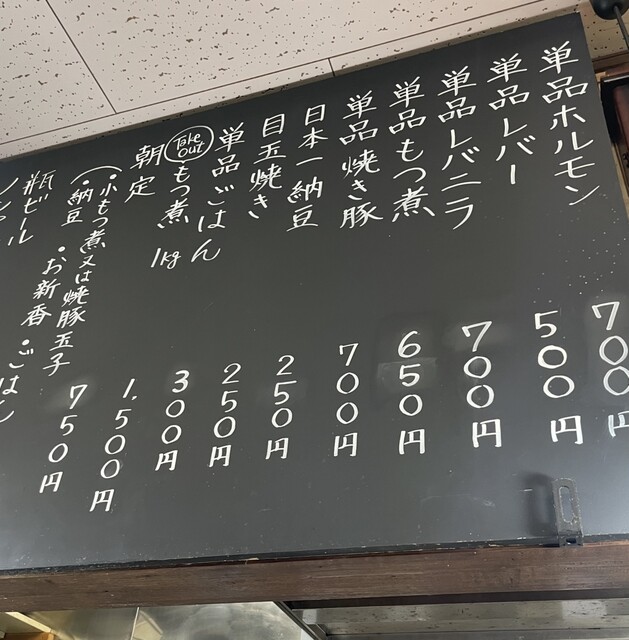 単品ホルモン 700円
単品レバー 500円
単品レバニラ 700円
単品もつ煮 650円
単品焼き豚 700円
日本一納豆 250円
目玉焼き 250円
単品ごはん 300円
Take out もつ煮 1kg 1,500円
朝定 750円
(・小もつ煮又は焼豚玉子
・納豆 ・お新香 ・ごはん
瓶ビール